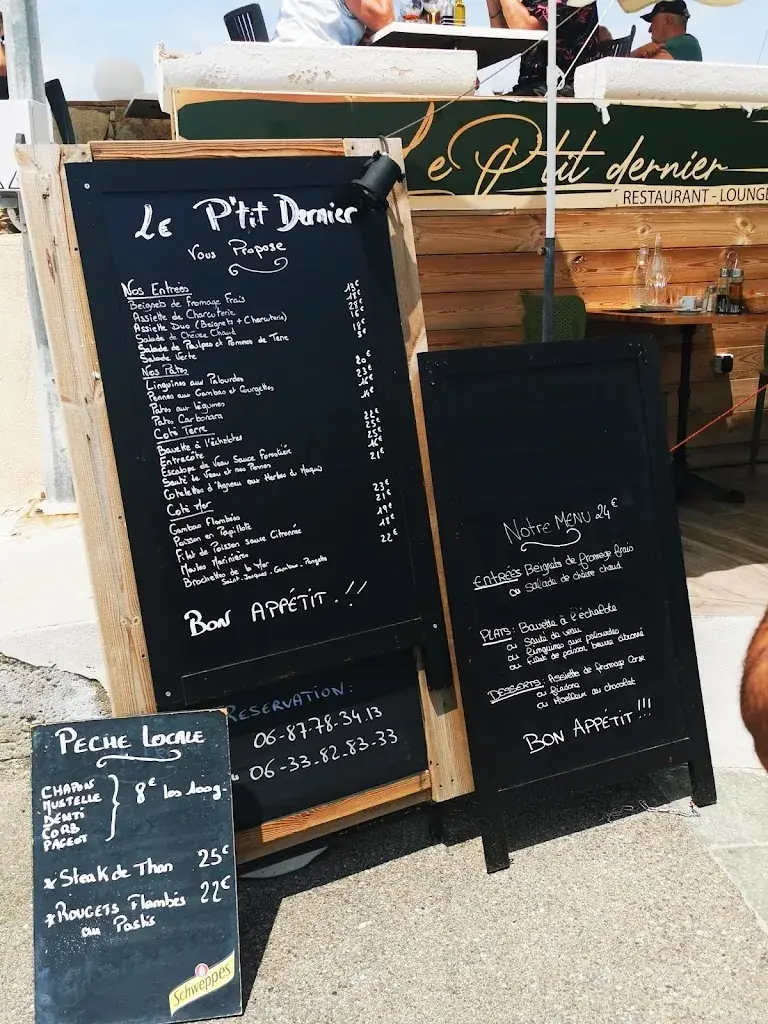 Le P'tit dernier
RESTAURANT - LOUNGE
Le P'tit Dernier
Vous Propose
Nos Entrées
Beignets de fromage Frais 13€
Assiette de Charcuterie 18€
Assiette Duo (Beignets + Charcuterie) 28€
Salade de Chèvre Chaud 16€
Salade de Poulpes et Pommes de Terre 18€
Salade Verte 5€
Nos Pâtes
Linguines aux Palourdes 20€
Pennes aux Gambas et Courgettes 23€
Pates aux légumes 16€
Pates Carbonara 14€
Coté Terre
Bavette à l'échalotes 22€
Entrecôte 25€
Escalope de Veau Sauce Forestière 25€
Sauté de Veau et nos Pennes 16€
Cotelettes d'Agneau aux Herbes du Maquis 21€
Coté Mer
Gambas Flambées 23€
Poisson en Papillote 21€
Filet de Poisson sauce Citronnée 19€
Moules Marinières 18€
Brochettes de la Mer 22€
Saint-Jacques, Gambas,
Bon APPÉTIT.!!
RESERVATION:
06-87.78.34.13
06-33.82.83-33
Notre MENU 24€
ENTRÉES Beignets de fromage frais
ou salade de chèvre chaud
PLATS: Bavette à l'échalote
ou Sauté de veau
ou linguines aux palourdes
ou filet de poisson beurre citronné
DESSERTS: Assiette de fromage Corse
ou Fiadone
ou Moelleux au chocolat
Bon APPÉTIT!!!
PECHE LOCALE
CHAPON
MUSTELLE
DENTI
CORB
PAGEOT
8€ les 100g.
*Steak de Thon 25€
*ROUGETS Flambés 22€
au Pastis
Schweppes